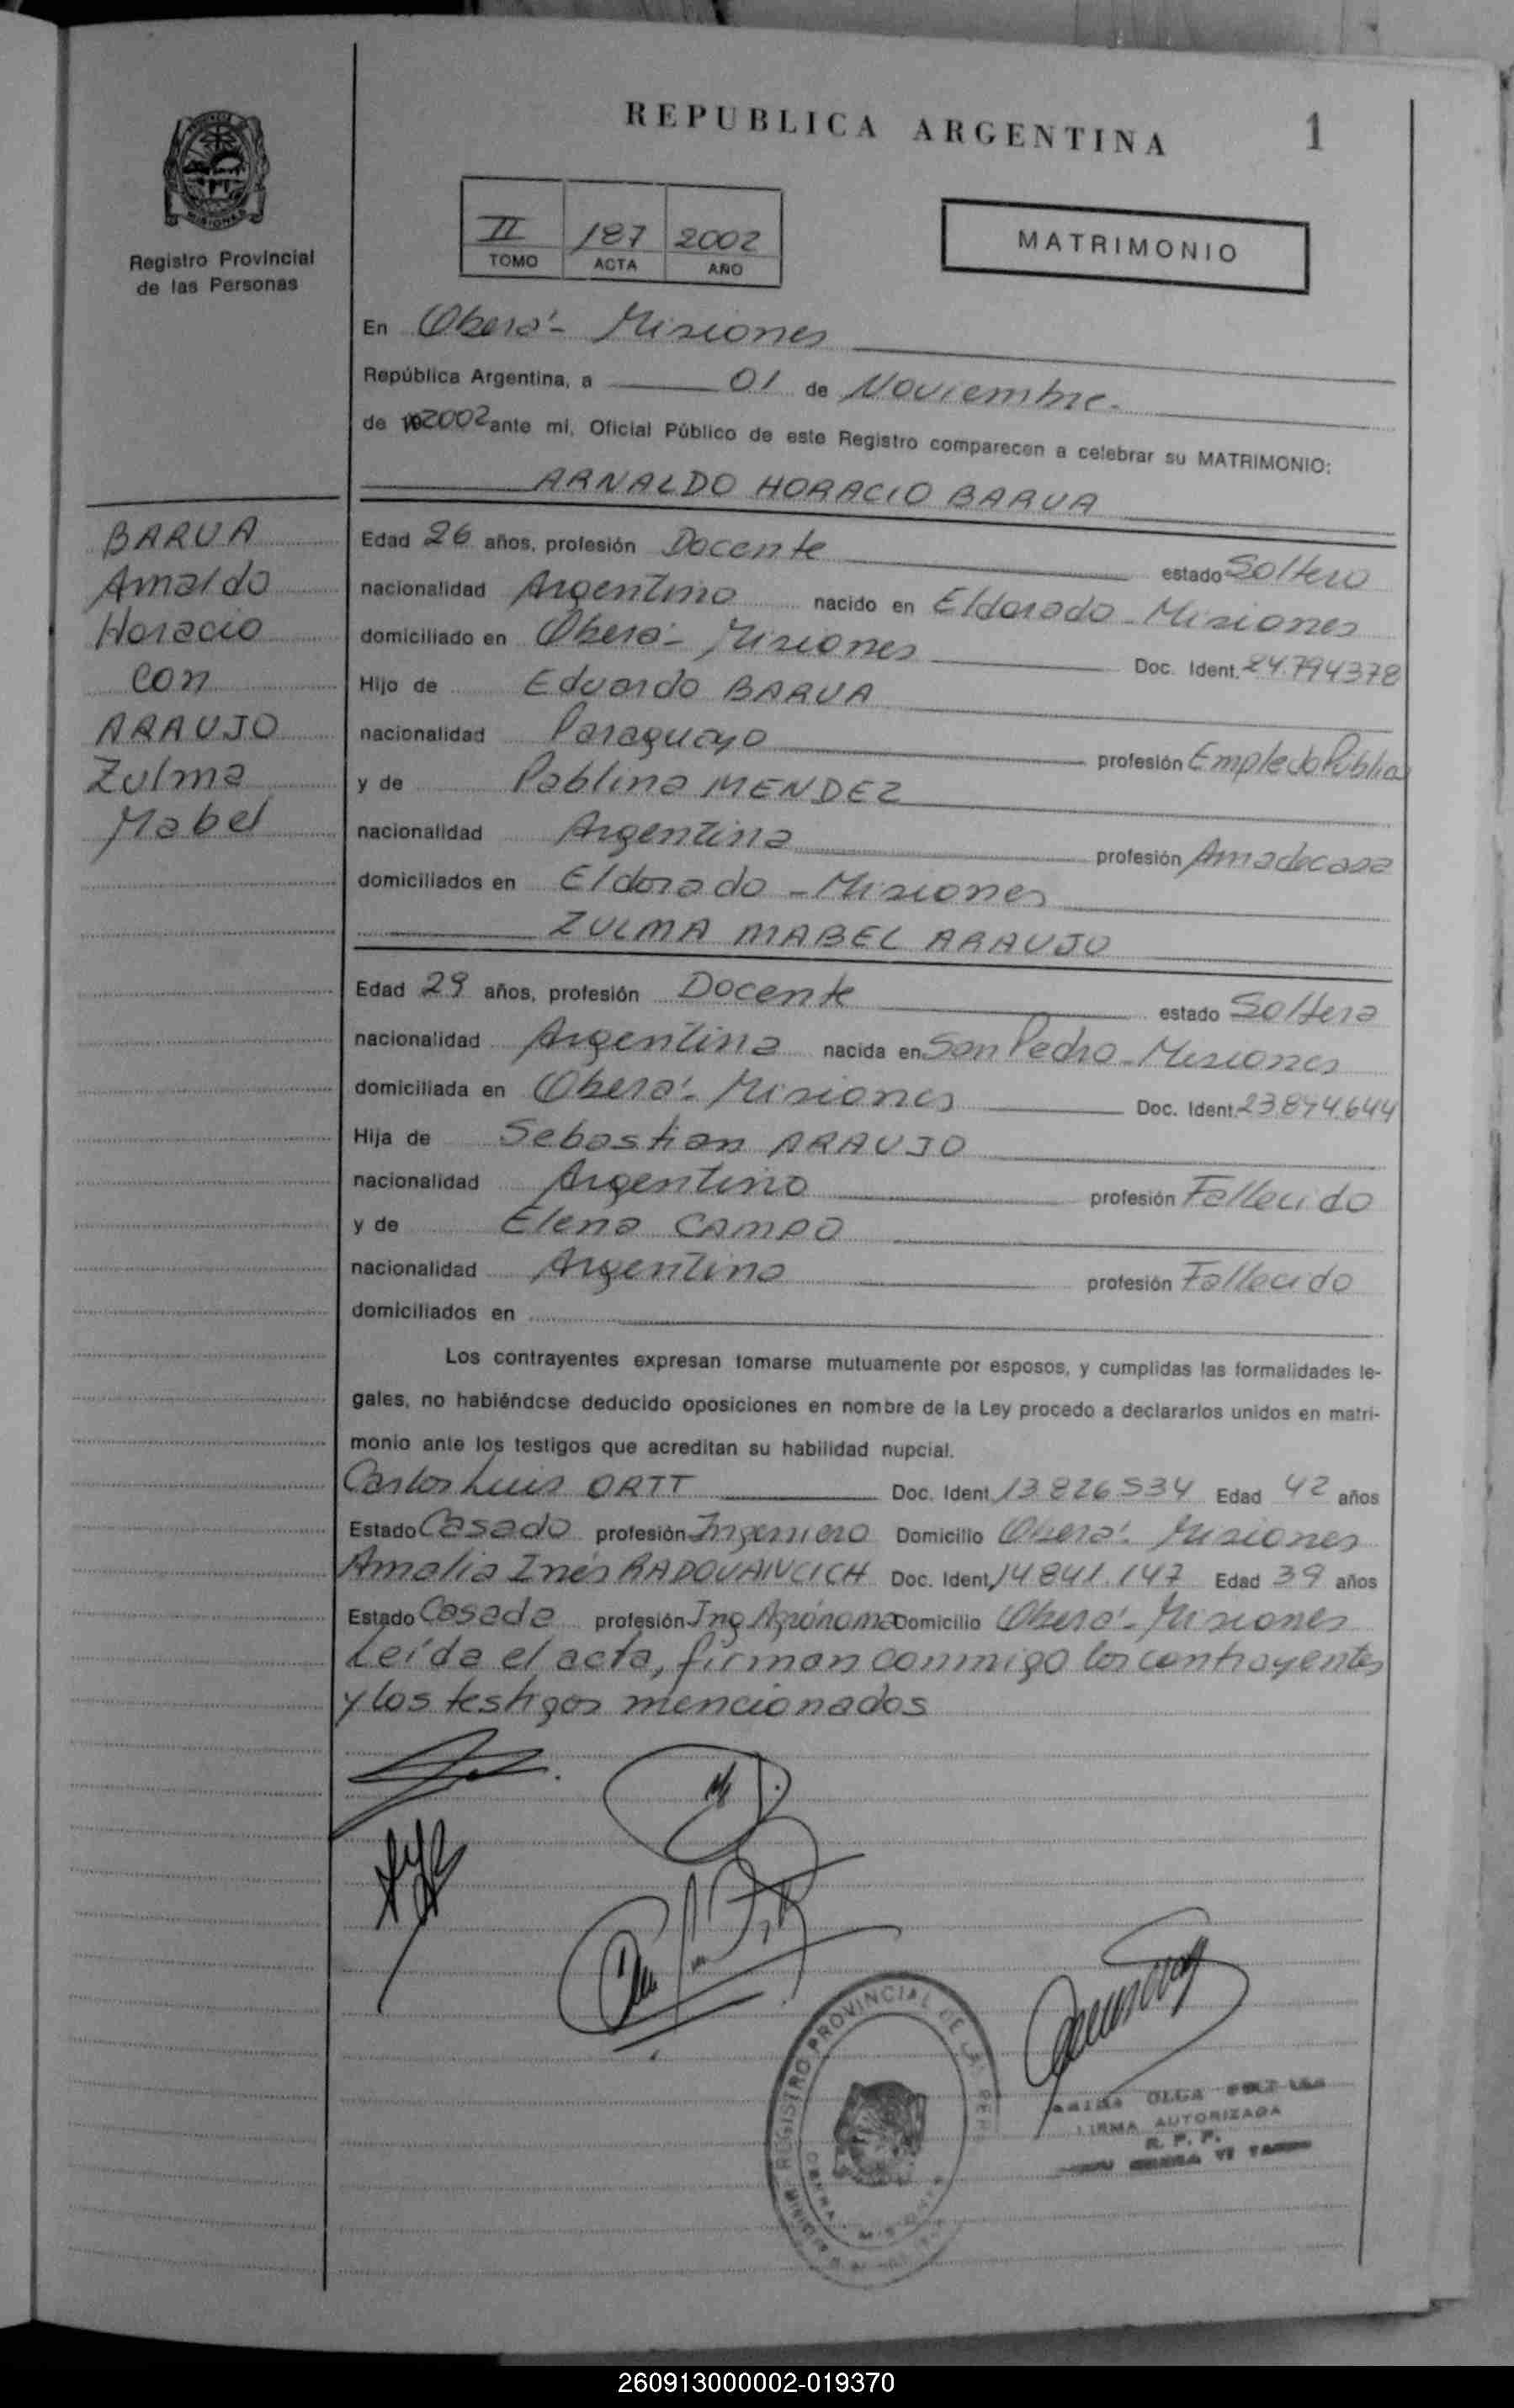 REPUBLICA ARGENTINA
1
MISIONES
Registro Provincial
de las Personas
II 187 2002
TOMO ACTA AÑO
MATRIMONIO
En Oberá - Misiones
República Argentina, a 01 de Noviembre.
de 192002 ante mi, Oficial Público de este Registro comparecen a celebrar su MATRIMONIO:
ARNALDO HORACIO BARUA
BARUA
Arnaldo
Horacio
con
ARAUJO
Zulma
Mabel
Edad 26 años, profesión Docente estado Soltero
nacionalidad Argentino nacido en Eldorado - Misiones
domiciliado en Oberá - Misiones Doc. Ident. 24.794378
Hijo de Eduardo BARUA
nacionalidad Paraguayo profesión Empledo Público
y de Pablina MENDEZ
nacionalidad Argentina profesión Amadecasa
domiciliados en Eldorado - Misiones
ZULMA MABEL ARAUJO
Edad 29 años, profesión Docente estado Soltera
nacionalidad Argentina nacida en San Pedro - Misiones
domiciliada en Oberá - Misiones Doc. Ident.
Hija de Sebastian ARAUJO
nacionalidad Argentino profesión Fallecido
y de Elena CAMPO
nacionalidad Argentina profesión Fallecido
domiciliados en
Los contrayentes expresan tomarse mutuamente por esposos, y cumplidas las formalidades le-
gales, no habiéndose deducido oposiciones en nombre de la Ley procedo a declararlos unidos en matri-
monio ante los testigos que acreditan su habilidad nupcial.
Carlos Luis ORTT Doc. Ident. 13.826.534 Edad 42 años
Estado Casado profesión Ingeniero Domicilio Oberá - Misiones
Amalia Inés RADOVANCICH Doc. Ident. 14841.147 Edad 39 años
Estado Casada profesión Ing Agrónoma Domicilio Oberá - Misiones
Leída el acta, firman conmigo los contrayentes
y los testigos mencionados
REGISTRO PROVINCIAL DE LAS PER
OLGA
FIRMA AUTORIZADA
R. P. P.
260913000002-019370